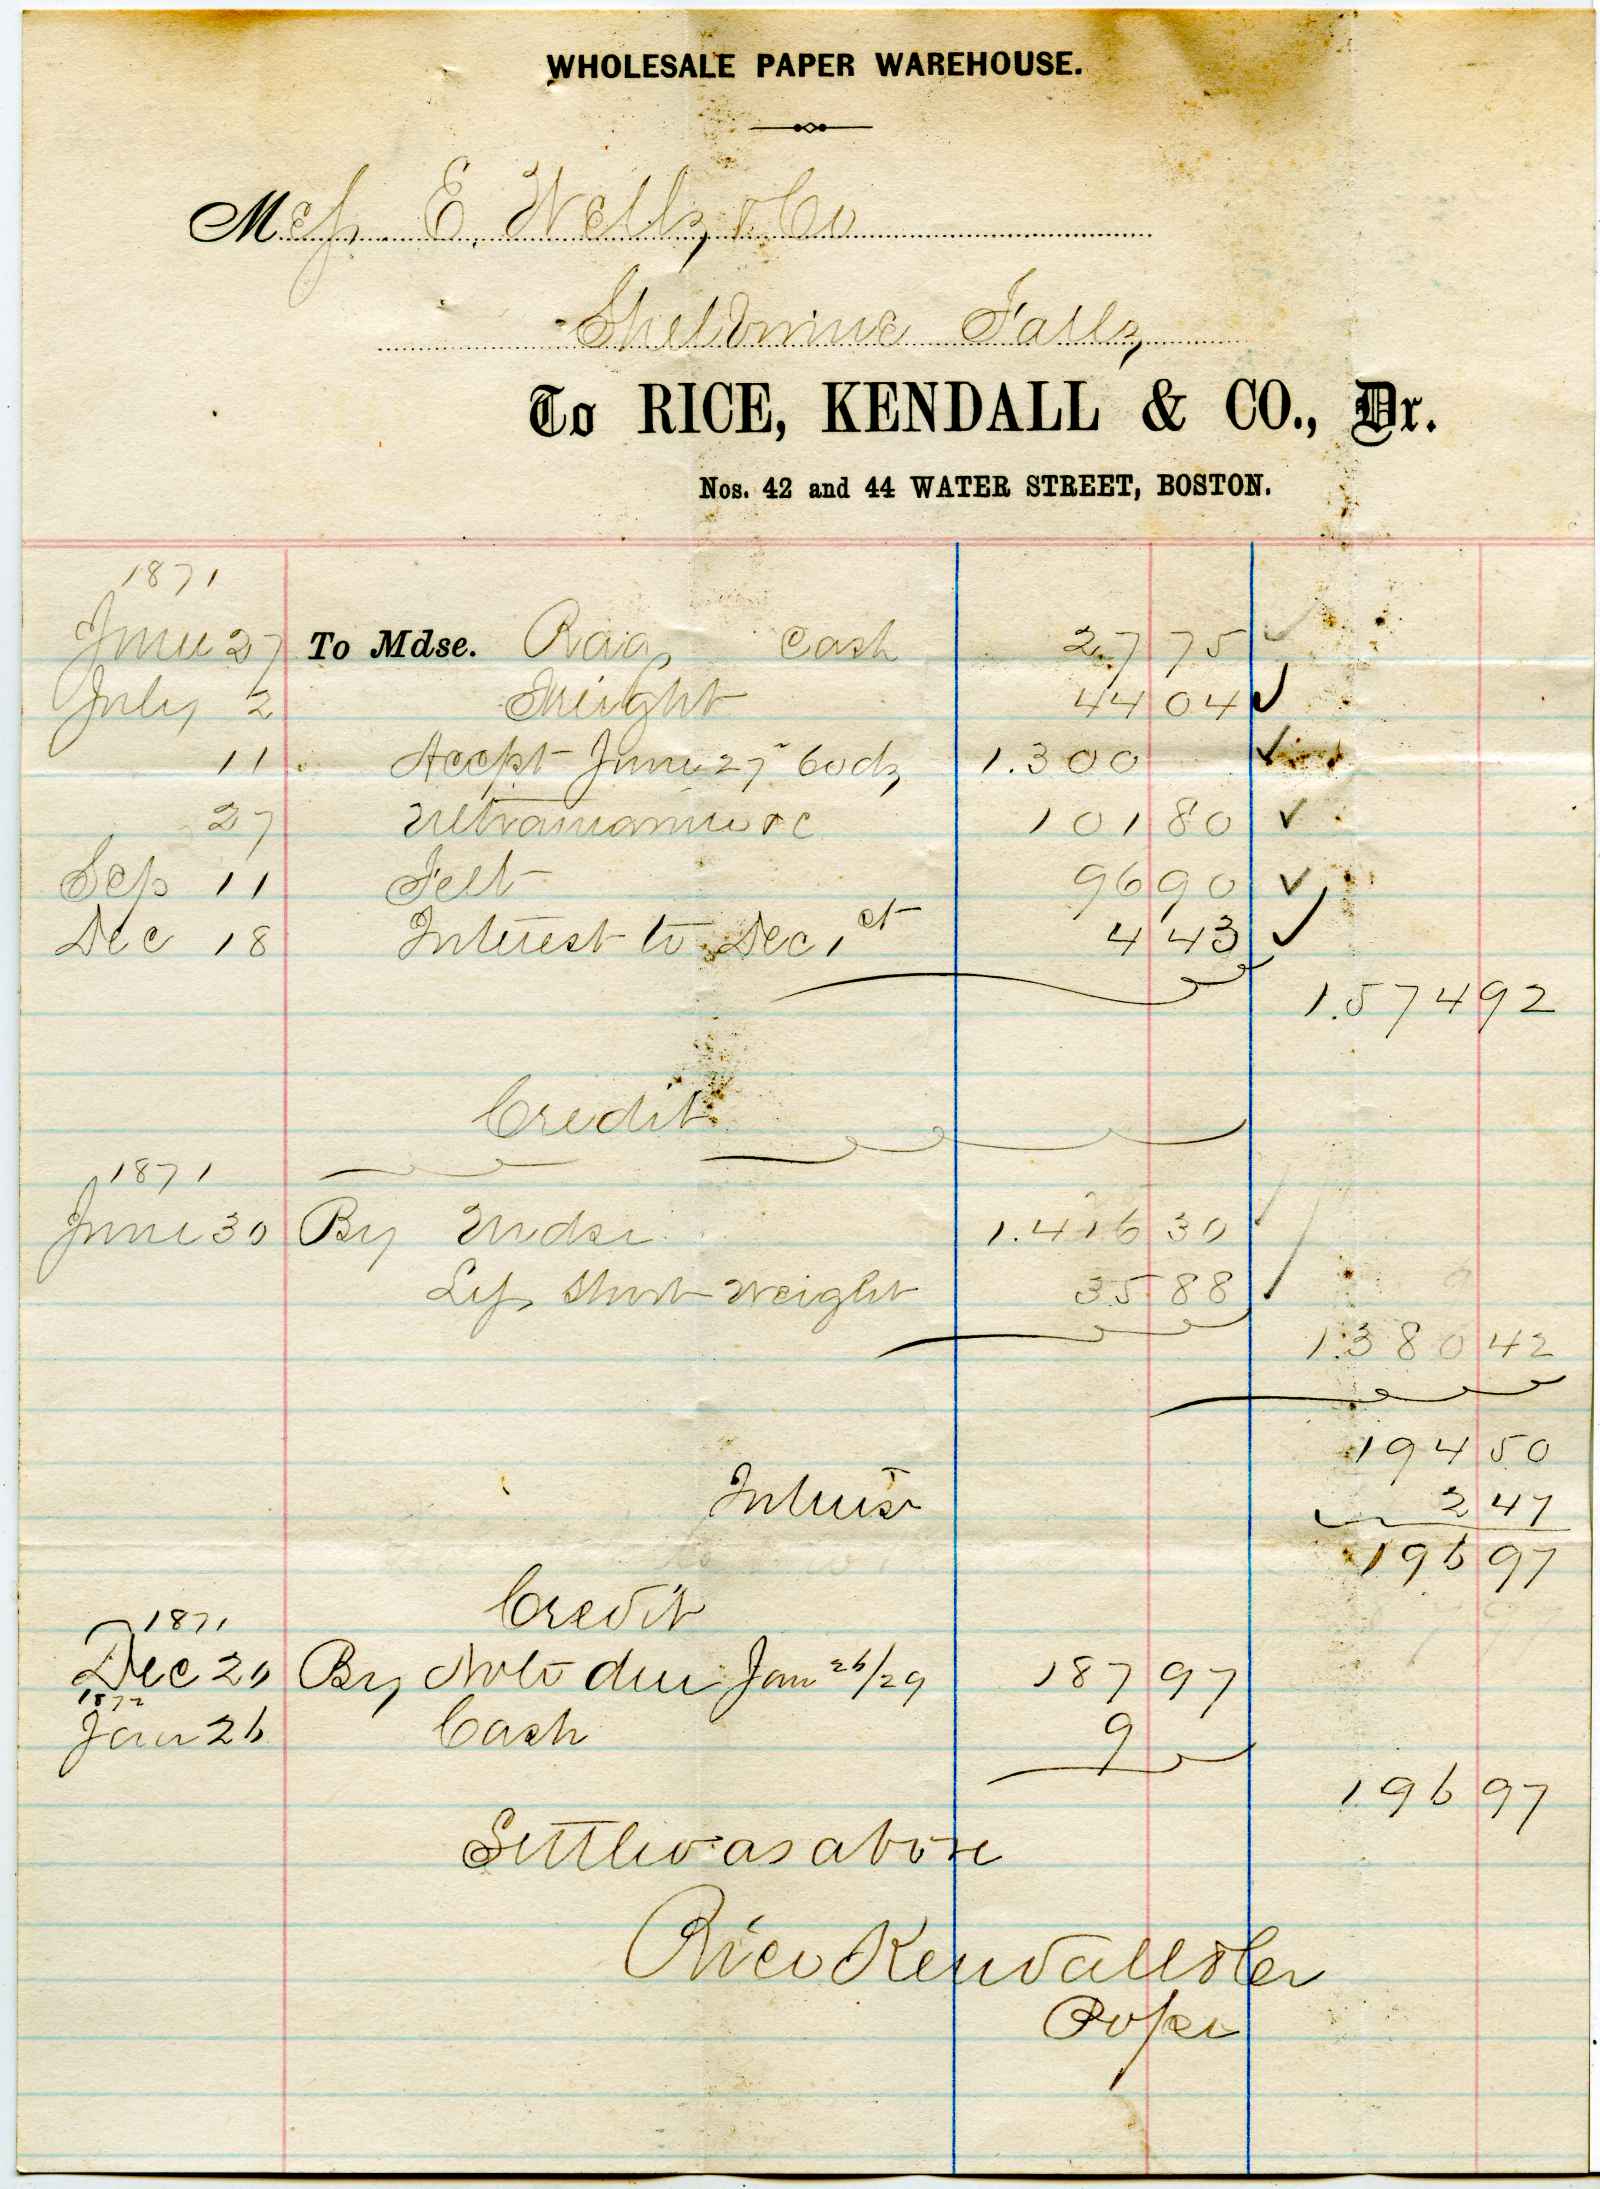 WHOLESALE PAPER WAREHOUSE.
Mess. E. Wells & Co
Shelburne Falls
To RICE, KENDALL & CO., Dr.
Nos. 42 and 44 WATER STREET, BOSTON.
1871
June 27 To Mdse. Rags Cash 27 75
July 2 Freight 44 04
11 Accpt June 27 60 ds 1.300
27 Ultramarine &c 101 80
Sep 11 Felt 96 90
Dec 18 Interest to Dec 1st 4 43
1.574 92
Credit
1871
June 30 By Mdse 1.416 30
Less Short Weight 35 88
1.380 42
194 50
Interest 2 47
196 97
Credit
1871
Dec 20 By Note due Jan 26/29 187 97
1872
Jan 26 Cash 9
196 97
Settled as above
Rice Kendall & Co